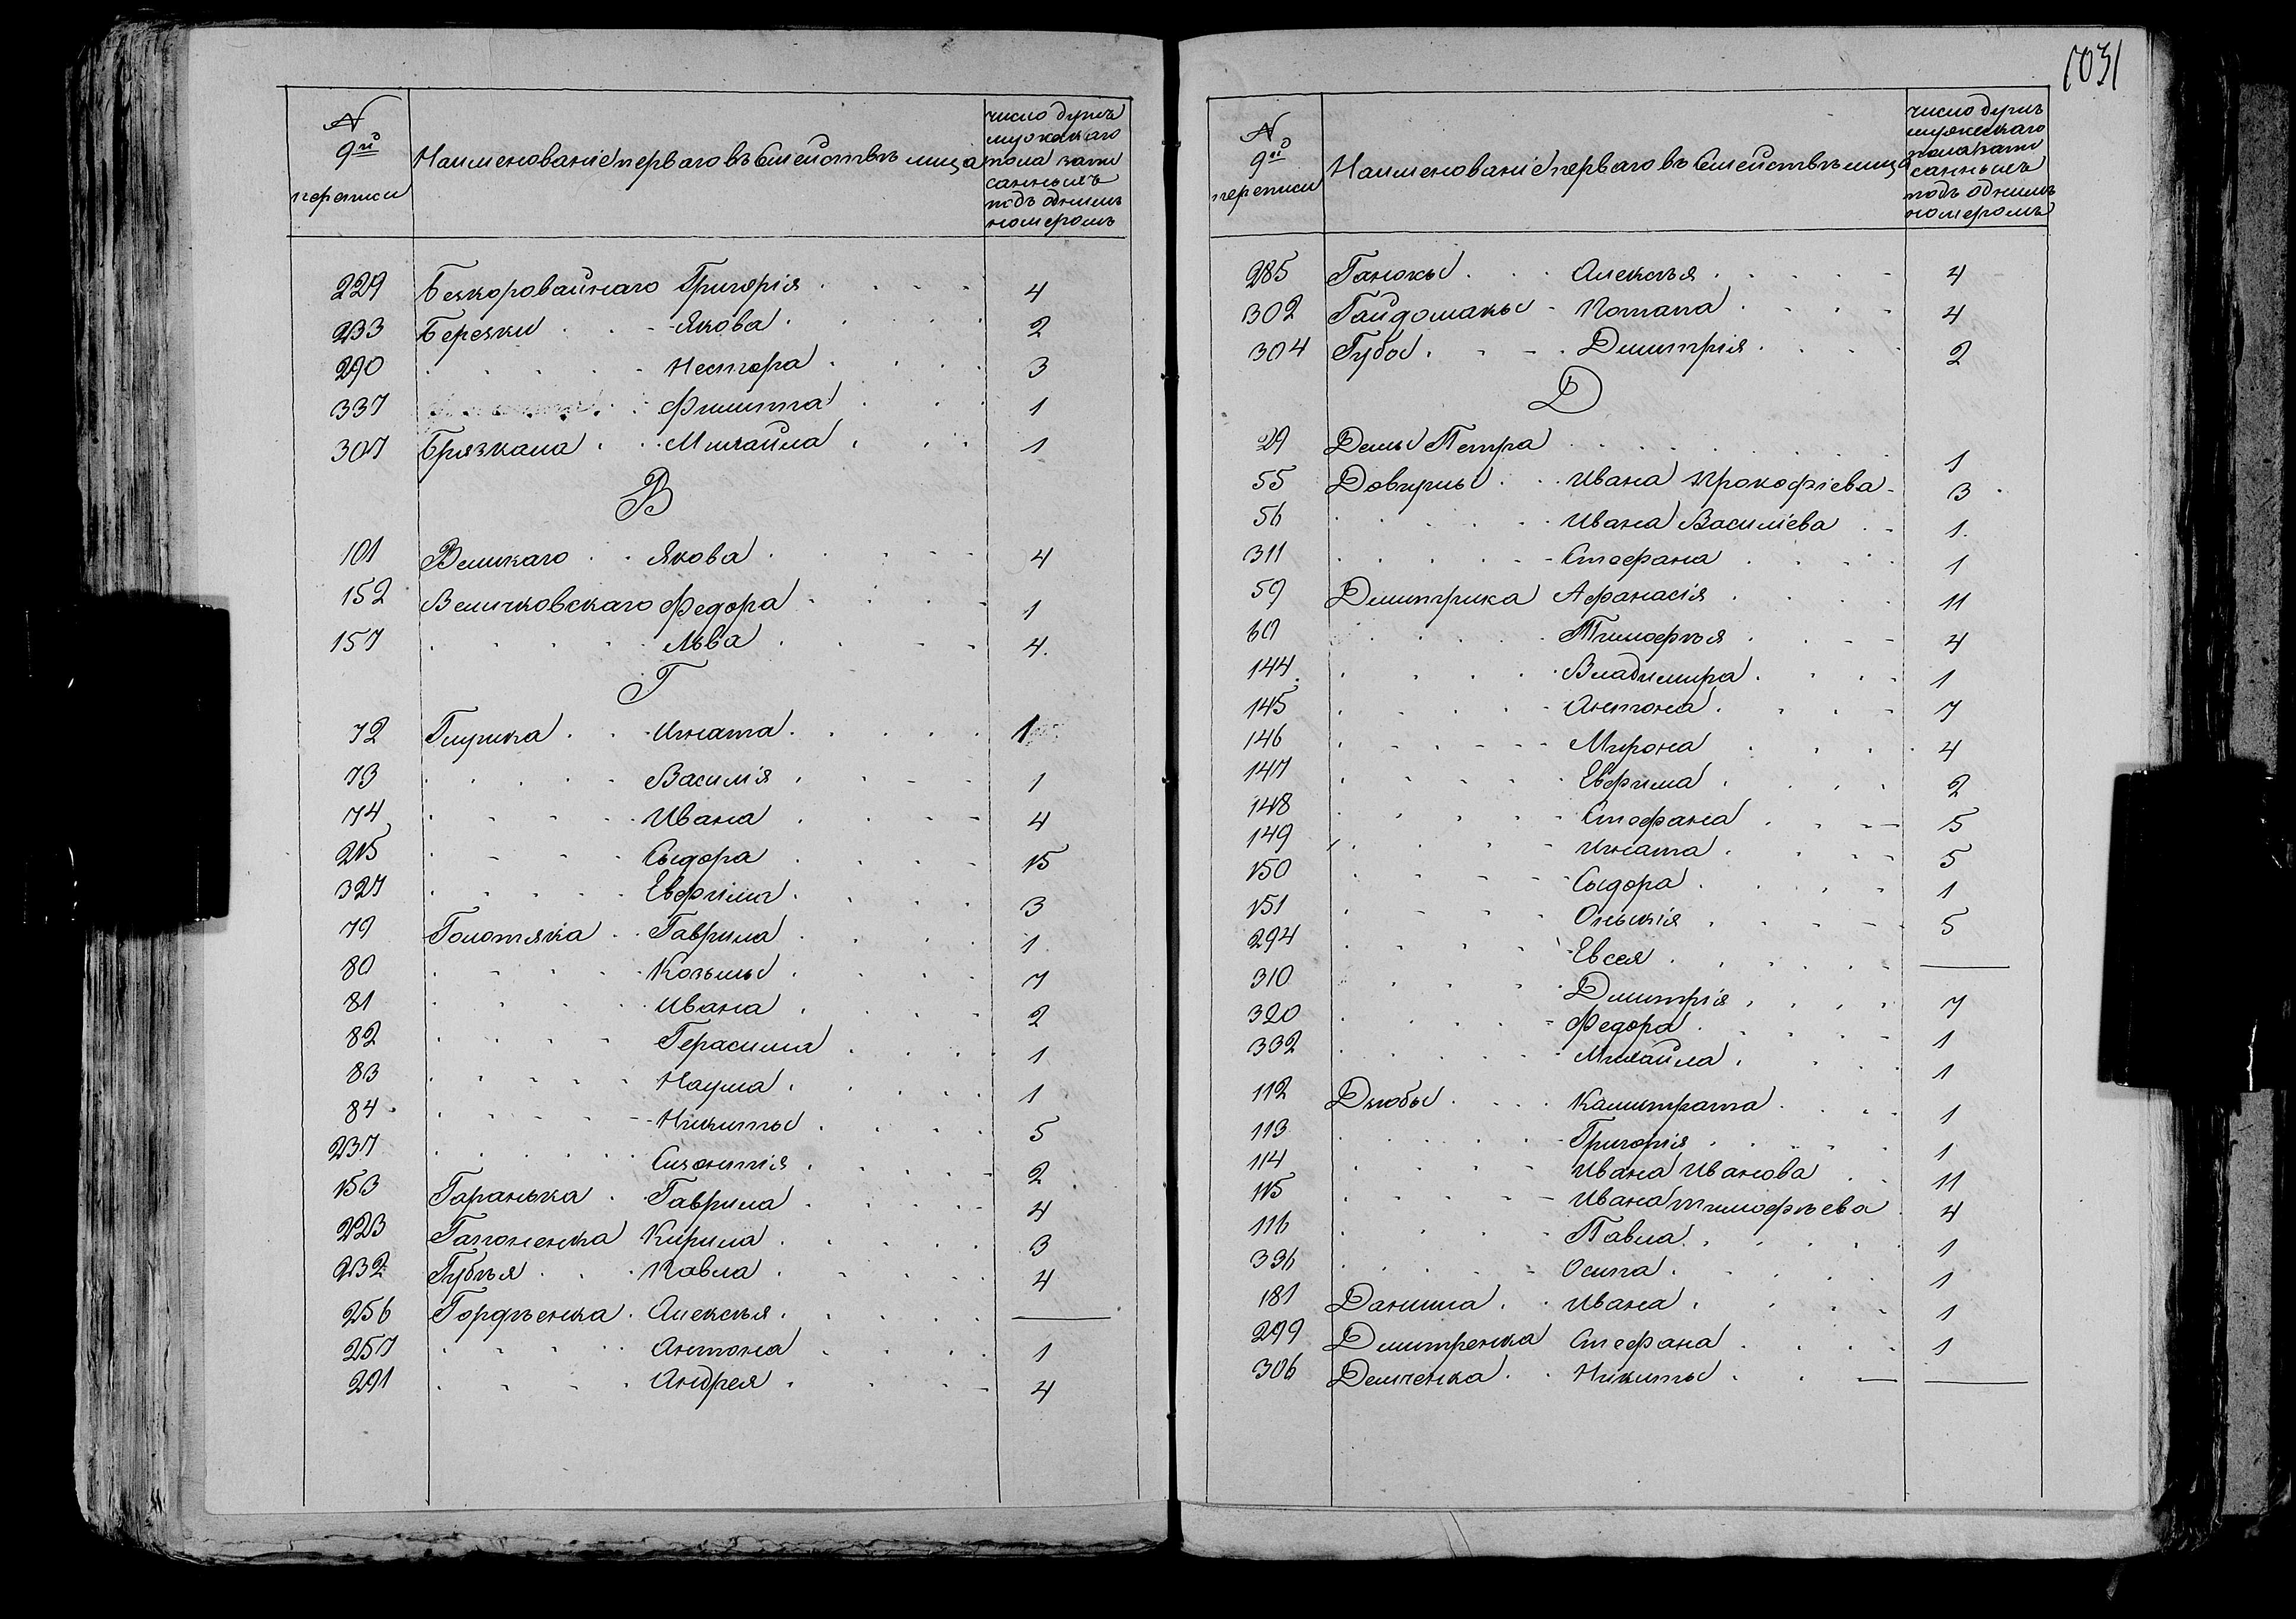 1031
№ 9й переписи
Наименованіе перваго въ Семействѣ лица
число душъ мужескаго пола запи санныхъ подъ однимъ номеромъ
229 Безкоровайнаго Григорія 4
233 Березки Якова 2
290 Нестора 3
337 Филиппа 1
307 Брязкала Михайла 1
В
101 Великаго Якова 4
152 Величковскаго Федора 1
157 Льва 4.
Г
72 Глушка Игната 1
73 Василія 1
74 Ивана 4
215 Сыдора 15
327 Евфима 3
79 Голотяка Гаврила 1
80 Козьмы 7
81 Ивана 2
82 Герасима 1
83 Наума 1
84 Никиты 5
237 Сизонтія 2
153 Гаранька Гаврила 4
223 Гапоненка Кирила 3
232 Губѣя Павла 4
256 Гордѣенка Алексѣя —
257 Антона 1
291 Андрея 4
№ 9й переписи
Наименованіе перваго въ Семействѣ лица
число душъ мужескаго пола запи санныхъ подъ однимъ номеромъ
285 Ганжы Алексѣя 4
302 Гайдомаки Потапа 4
304 Губы Димитрія 2
Д
29 Петра 1
55 Довгуши Ивана Прокофіева 3
56 Ивана Василіева 1.
311 Стефана 1
59 Димитрика Афанасія 11
60 Тимофѣя 4
144 Владимира 1
145 Антона 7
146 Мирона 4
147 Евфима 2
148 Стефана 5
149 Игната 5
150 Сыдора 1
151 5
294 Евсея —
310 Димитрія 7
320 Федора 1
332 Михайла 1
112 Дзюбы Калистрата 1
113 Григорія 1
114 Ивана Иванова 11
115 Ивана Тимофѣева 4
116 Павла 1
336 Осипа 1
181 Данила Ивана 1
299 Димитренка Стефана 1
306 Демченка Никиты —